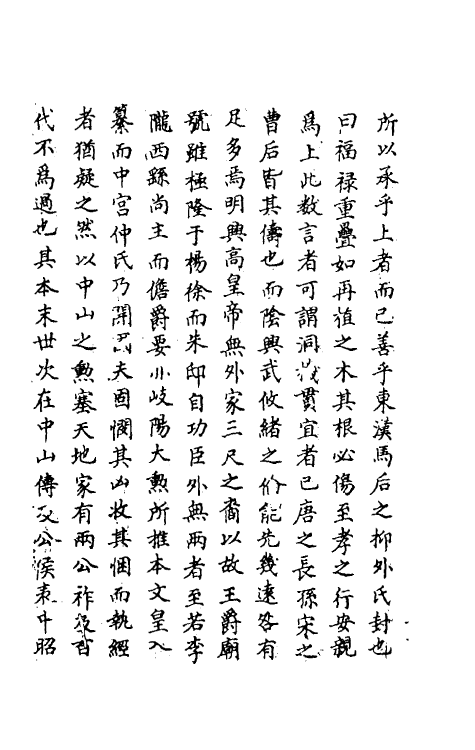 所以承乎上者而已善乎東漢馬后之抑外氏封也
曰福禄重疊如再殖之木其根必傷至孝之行安親
爲上此数言者可謂洞貫宜者已唐之長孫宋之
曹后皆其儔也而陰興武攸緒之能先幾遠咎有
足多焉明興高皇帝無外家三尺之裔以故王爵廟
號雖極隆于楊徐而朱邸自功臣外無兩者至若李
隴西繇尚主而儋爵要小岐陽大勲所推本文皇入
纂而中宫仲氏乃閈夫固憫其凶收其悃而執經
者猶疑之然以中山之勲塞天地家有兩公祚及百
代不爲過也其本末世次在中山傳及公侯表中昭